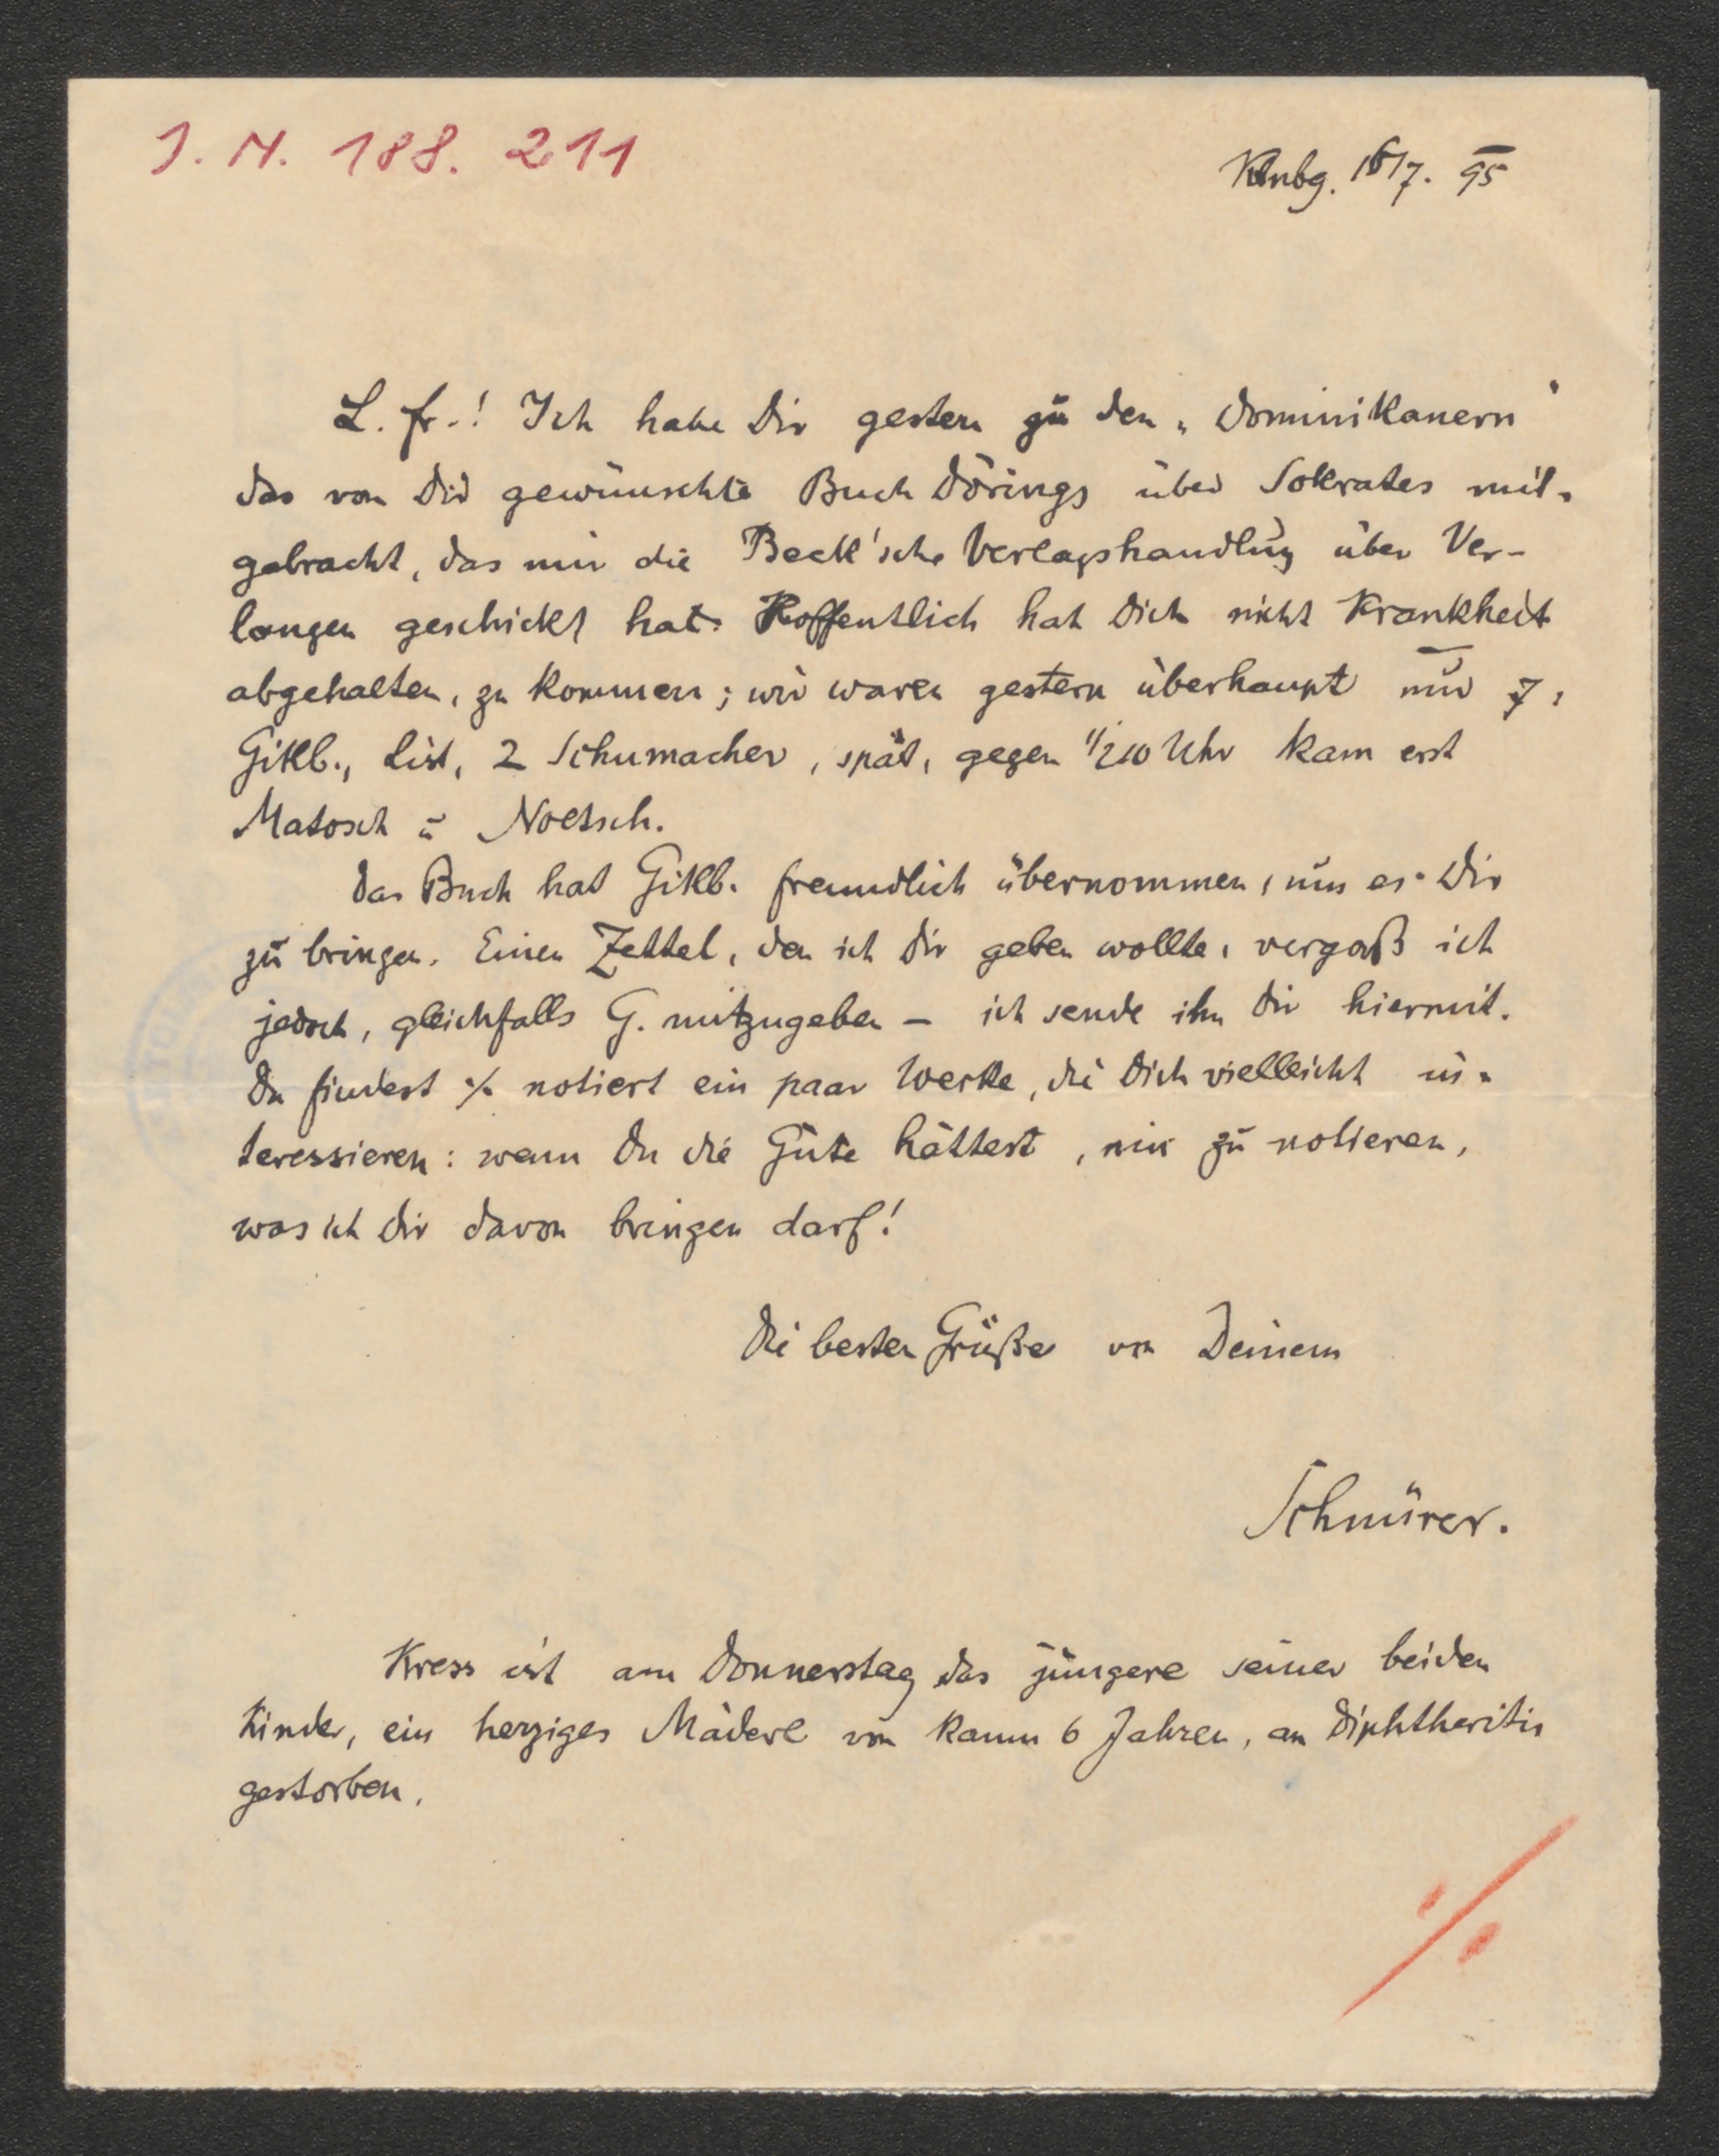 J. N. 188. 211
Klnbg. 16/7. 95
L. Fr.! Ich habe Dir gestern zu den „Dominikanern"
das von Dir gewünschte Buch Dörings über Sokrates mit-
gebracht, das mir die Beck'sche Verlagshandlug über Ver-
langen geschickt hat. Hoffentlich hat Dich nicht Krankheit
abgehalten, zu kommen; wir waren gestern überhaupt nur 7:
Gitlb., List, 2 Schumacher, spät, gegen 1/2 10 Uhr kam erst
Matosch u Noetsch.
Das Buch hat Gitlb. freundlich übernommen, um es Dir
zu bringen. Einen Zettel, den ich Dir geben wollte, vergaß ich
jedoch, gleichfalls G. mitzugeben – ich sende ihn Dir hiermit.
Du findest ·/. notiert ein paar Werke, die Dich vielleicht in-
teressieren: wenn Du die Güte hättest, mir zu notieren,
was ich Dir davon bringen darf!
Die besten Grüße von Deinem
Schnürer.
Kress ist am Donnerstag das jüngere seiner beiden
Kinder, ein herziges Mäderl von kaum 6 Jahren, an Diphtheritis
gestorben.
·/.